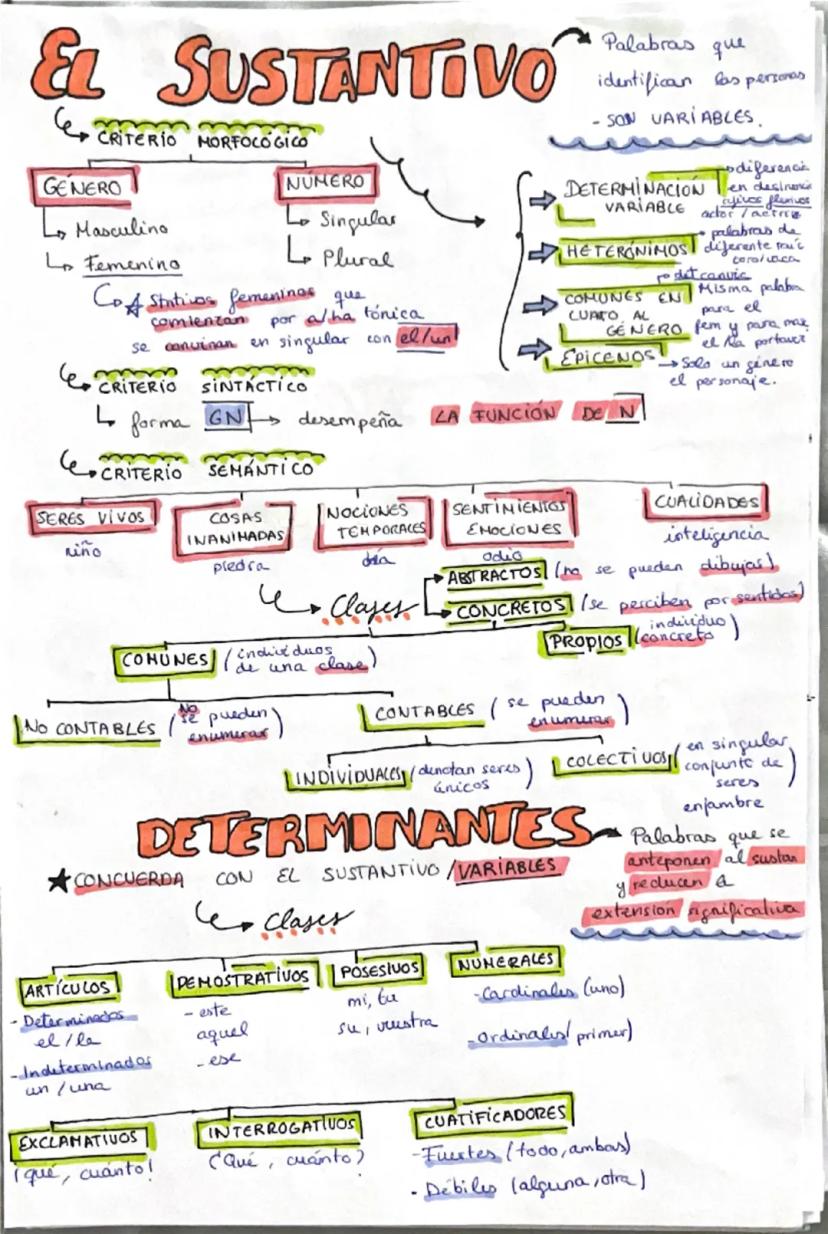 EL SUSTANTIVO
Palabras que
identifican las personas
- SON VARIABLES.
CRITERIO MORFOLÓGICO
GÉNERO
NÚMERO
Masculino
Femenino
Singular
Plural
femeninos que
comienzan por a/ha tónica
se convinan en singular con el/un
DETERMINACIÓN
VARIABLE
diferencia
en desinencia
actor / actriz
HETERÓNIMOS
palabras de
diferente raíz
toro/vaca
COMUNES EN
CUATO AL
GÉNERO
Misma palabra
para el
fem y para mas
el/la portavoz
EPICENOS
Solo un género
el personaje.
CRITERIO SINTÁCTICO
forma GN desempeña LA FUNCIÓN DE N
CRITERIO SEMÁNTICO
SERES VIVOS
niño
COSAS
INANIMADAS
piedra
NOCIONES
TEMPORALES
día
SENTIMIENTOS
EMOCIONES
odio
CUALIDADES
inteligencia
Clases
ABSTRACTOS (no se pueden dibujar)
CONCRETOS (se perciben por sentidos)
COMUNES (individuos
de una clase)
PROPIOS (individuo
concreto)
NO CONTABLES (NO
se pueden
enumerar)
CONTABLES (se pueden
enumerar)
INDIVIDUALES (denotan seres
únicos)
COLECTIVOS (en singular
conjunto de
seres)
enjambre
DETERMINANTES
Palabras que se
anteponen al sustan
y reducen a
extensión significativa
★ CONCUERDA CON EL SUSTANTIVO / VARIABLES
Clases
ARTÍCULOS
- Determinados
el / la
- Indeterminados
un / una
DEMOSTRATIVOS
- este
aquel
- ese
POSESIVOS
mi, tu
su, vuestra
NUMERALES
- Cardinales (uno)
- Ordinales (primer)
EXCLAMATIVOS
¡qué, cuánto!
INTERROGATIVOS
¿Qué, cuánto?
CUATIFICADORES
- Fuertes (todo, ambas)
- Débiles (alguna, otra)